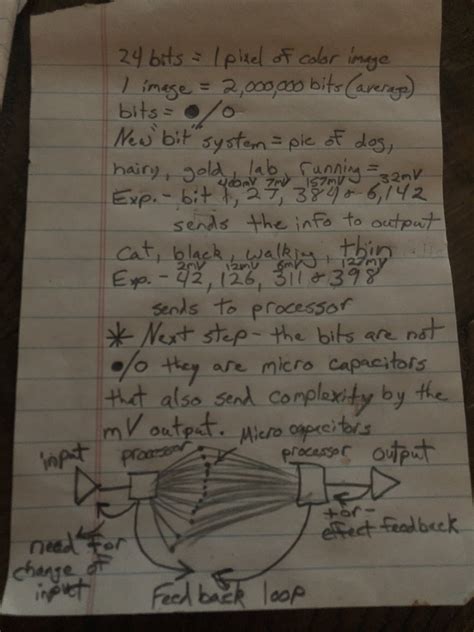 24 bits = 1 pixel of color image
1 image = 2,000,000 bits (average)
bits = ●/0
New "bit" system = pic of dog,
hairy, gold, lab, running =
400mV 7mV 157mV 32mV
Exp. - bit 1, 27, 384 & 6,142
sends the info to output
cat, black, walking, thin
2mV 12mV 6mV 127mV
Exp. - 42, 126, 311 & 398
sends to processor
* Next step - the bits are not
●/0 they are micro capacitors
that also send complexity by the
mV output. Micro capacitors
input processor processor output
+or-
effect feedback
need for
change of
input
Feedback loop